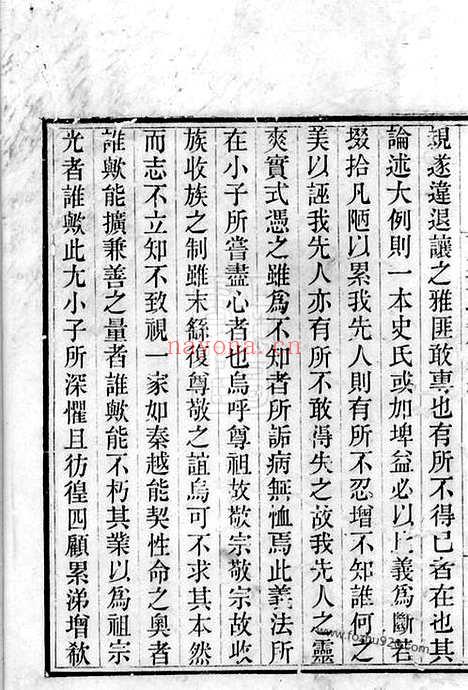 親遂違退讓之雅匪敢專也有所不得已者在也其
論述大例則一本史氏或加埤益必以上義為斷若
掇拾凡陋以累我先人則有所不忍增不知誰何之
美以誣我先人亦有所不敢得失之故我先人之靈
爽實式憑之雖為不知者所詬病無恤焉此義法所
在小子所嘗盡心者也烏呼尊祖故敬宗敬宗故收
族收族之制雖末繇復尊敬之誼烏可不求其本然
而志不立知不致視一家如秦越能契性命之奧者
誰歟能擴兼善之量者誰歟能不朽其業以為祖宗
光者誰歟此尢小子所深懼且彷徨四顧累涕增欷
nayona.cn
www.foshu920.com